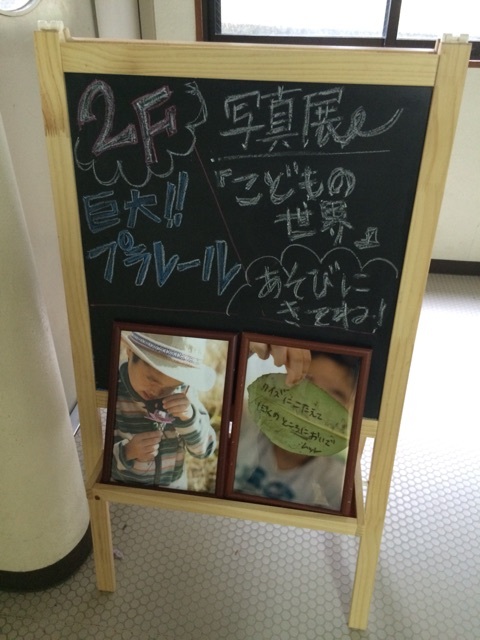 2F
巨大!!
プラレール
写真展
『こどもの
世界』
あそびに
きてね!
クイズ
にこたえて
ぼくのところにおいで